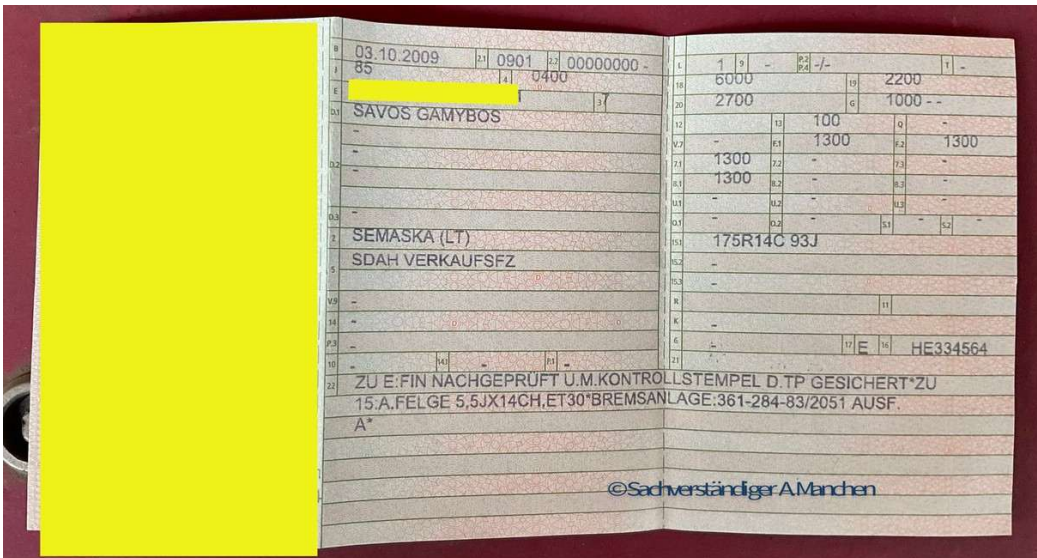 B 03.10.2009 2.1 0901 2.2 00000000 -
J 85 4 0400
E 3 7
D.1 SAVOS GAMYBOS
-
-
D.2 -
-
D.3 -
2 SEMASKA (LT)
5 SDAH VERKAUFSFZ
-
V.9 -
14 -
P.3 -
10 - 14.1 - P.1 -
L 1 9 - P.2 P.4 -/- T -
18 6000 19 2200
20 2700 G 1000 - -
12 - 13 100 Q -
V.7 - F.1 1300 F.2 1300
7.1 1300 7.2 - 7.3 -
8.1 1300 8.2 - 8.3 -
U.1 - U.2 - U.3 -
O.1 - O.2 - S.1 - S.2 -
15.1 175R14C 93J
15.2 -
15.3 -
R - 11
K -
6 - 17 E 16 HE334564
21
22 ZU E:FIN NACHGEPRÜFT U.M.KONTROLLSTEMPEL D.TP GESICHERT*ZU
15:A.FELGE 5,5JX14CH,ET30*BREMSANLAGE:361-284-83/2051 AUSF.
A*
©Sachverständiger A.Manchen